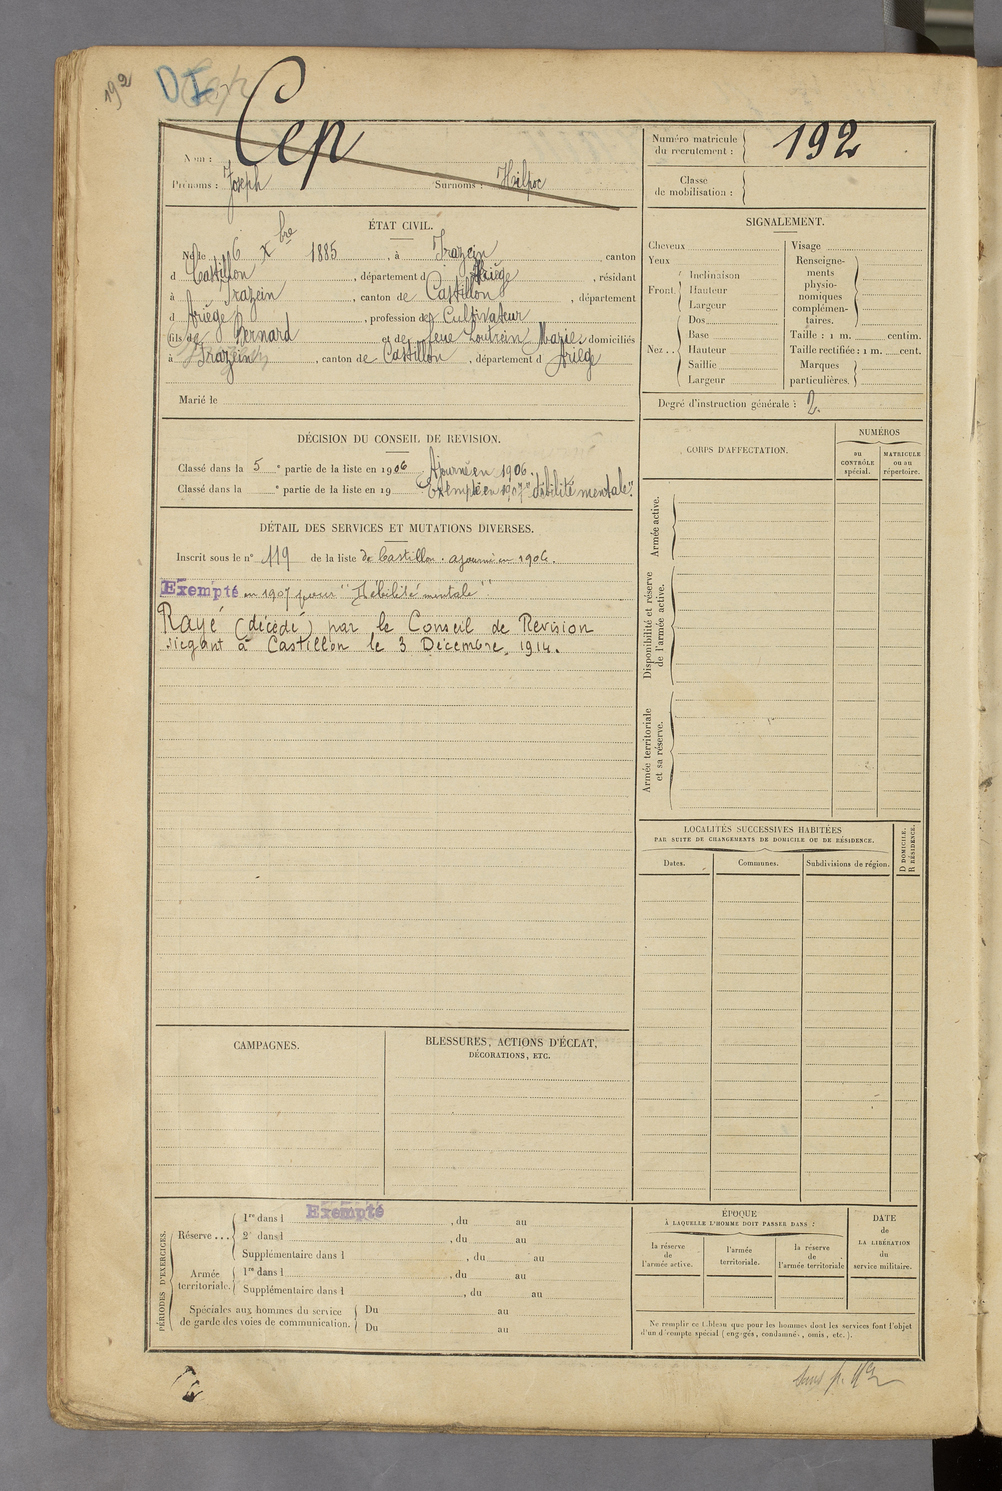 192
DI
Cep
Nom : Cep
Prénoms : Joseph Surnoms :
Numéro matricule
du recrutement : 192
Classe
de mobilisation :
ÉTAT CIVIL.
Né le 6 Xbre 1885, à Irazein, canton
d Castillon, département d Ariège, résidant
à Irazein, canton de Castillon, département
d Ariège, profession de Cultivateur
fils de Bernard et de feue Loutrein Marie domiciliés
à Irazein, canton de Castillon, département d Ariège
Marié le
SIGNALEMENT.
Cheveux
Yeux
Front. Inclinaison
Hauteur
Largeur
Nez .. Dos
Base
Hauteur
Saillie
Largeur
Visage
Renseigne-
ments
physio-
nomiques
complémen-
taires.
Taille : 1 m. centim.
Taille rectifiée : 1 m. cent.
Marques
particulières.
Degré d'instruction générale : 2.
DÉCISION DU CONSEIL DE REVISION.
Classé dans la 5 e partie de la liste en 1906 Ajourné en 1906.
Classé dans la e partie de la liste en 19 Exempté en 1907 "débilité mentale".
DÉTAIL DES SERVICES ET MUTATIONS DIVERSES.
Inscrit sous le n° 119 de la liste de Castillon. ajourné en 1906.
Exempté en 1907 pour "Débilité mentale"
Rayé (décédé) par le Conseil de Revision
siégant à Castillon le 3 Décembre, 1914.
CORPS D'AFFECTATION.
NUMÉROS
au
CONTRÔLE
spécial.
MATRICULE
ou au
répertoire.
Armée active.
Disponibilité et réserve
de l'armée active.
Armée territoriale
et sa réserve.
LOCALITÉS SUCCESSIVES HABITÉES
PAR SUITE DE CHANGEMENTS DE DOMICILE OU DE RÉSIDENCE.
Dates.
Communes.
Subdivisions de région.
D DOMICILE.
R RÉSIDENCE.
CAMPAGNES.
BLESSURES, ACTIONS D'ÉCLAT,
DÉCORATIONS, ETC.
PÉRIODES D'EXERCICES.
Réserve ... 1re dans l Exempté, du au
2e dans l, du au
Supplémentaire dans l, du au
Armée
territoriale. 1re dans l, du au
Supplémentaire dans l, du au
Spéciales aux hommes du service
de garde des voies de communication.
Du au
Du au
ÉPOQUE
À LAQUELLE L'HOMME DOIT PASSER DANS :
la réserve
de
l'armée active.
l'armée
territoriale.
la réserve
de
l'armée territoriale
DATE
de
LA LIBÉRATION
du
service militaire.
Ne remplir ce tableau que pour les hommes dont les services font l'objet
d'un décompte spécial (engagés, condamnés, omis, etc.).